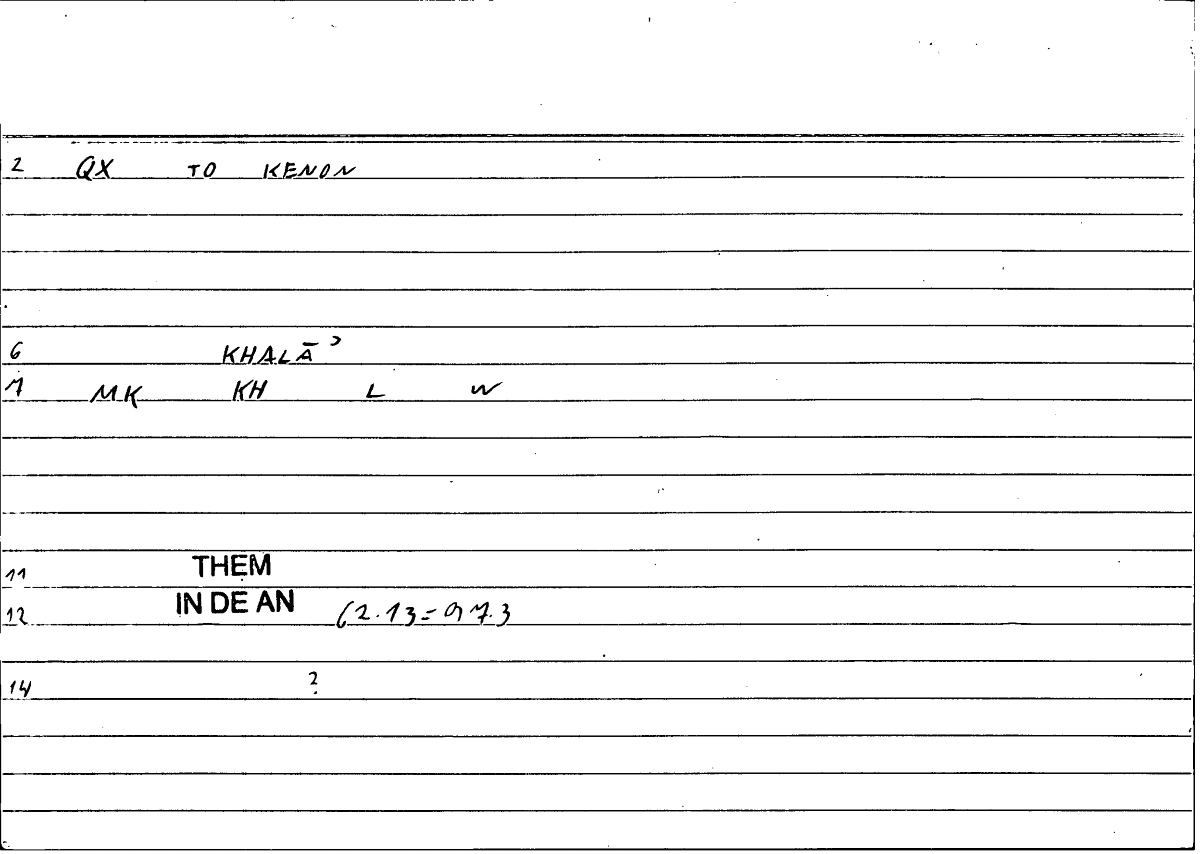 2 QX TO KENON
6 KHALĀʾ
7 MK KH L W
11 THEM
12 IN DE AN 62.13=97.3
14 ?